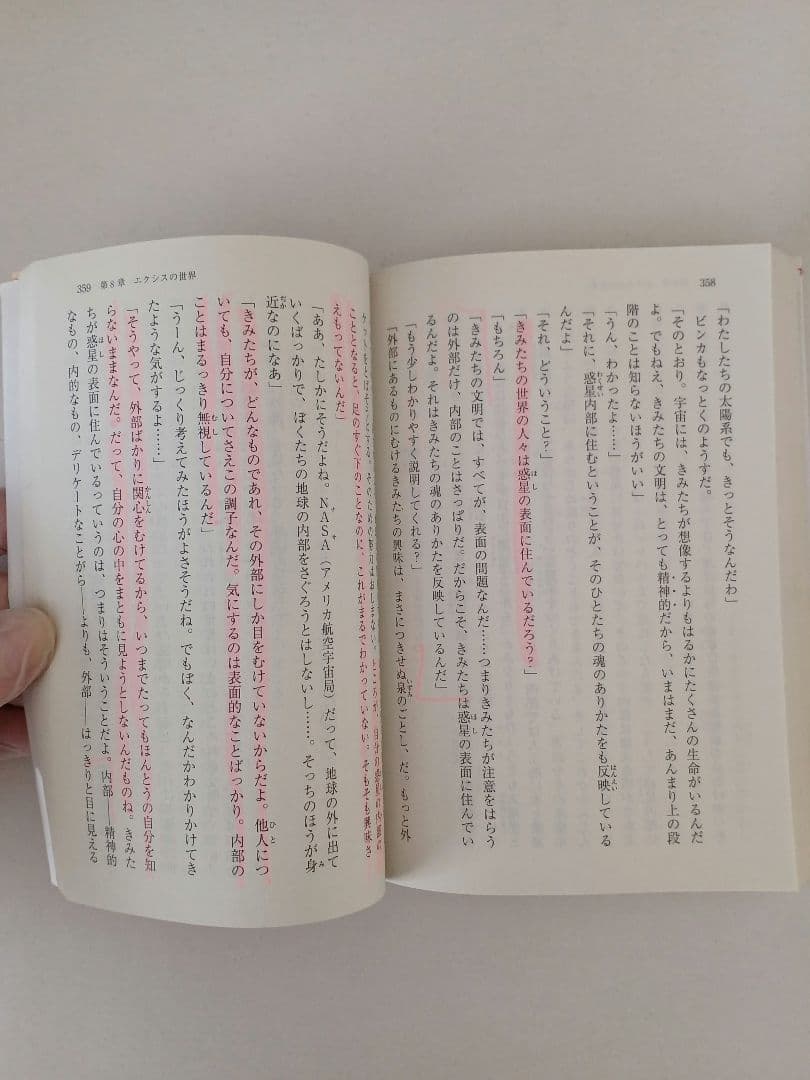 358
「わたしたちの太陽系でも、きっとそうなんだわ」
ビンカもなっとくのようすだ。
「そのとおり。宇宙には、きみたちが想像するよりもはるかにたくさんの生命がいるんだ
よ。でもねえ、きみたちの文明は、とっても精神的だから、いまはまだ、あんまり上の段
階のことは知らないほうがいい」
「うん、わかったよ……」
「それに、惑星内部に住むということが、そのひとたちの魂のありかたをも反映している
んだよ」
「それ、どういうこと？」
「きみたちの世界の人々は惑星の表面に住んでいるだろう？」
「もちろん」
「きみたちの文明では、すべてが、表面の問題なんだ……つまりきみたちが注意をはらう
のは外部だけ、内部のことはさっぱりだ。だからこそ、きみたちは惑星の表面に住んでい
るんだよ。それはきみたちの魂のありかたを反映しているんだ」
「もう少しわかりやすく説明してくれる？」
「外部にあるものにむけるきみたちの興味は、まさにつきせぬ泉のごとし、だ。もっと外
359 第8章 エクシスの世界
こととなると、足のすぐ下のことなのに、これがまるでわかっていない。そもそも興味さ
えもってないんだ」
「ああ、たしかにそうだよね。NASA（アメリカ航空宇宙局）だって、地球の外に出て
いくばっかりで、ぼくたちの地球の内部をさぐろうとはしないし……。そっちのほうが身
近なのになあ」
「きみたちが、どんなものであれ、その外部にしか目をむけていないからだよ。他人につ
いても、自分についてさえこの調子なんだ。気にするのは表面的なことばっかり。内部の
ことはまるっきり無視しているんだ」
「うーん、じっくり考えてみたほうがよさそうだね。でもぼく、なんだかわかりかけてき
たような気がするよ……」
「そうやって、外部ばかりに関心をむけてるから、いつまでたってもほんとうの自分を知
らないままなんだ。だって、自分の心の中をまともに見ようとしないんだものね。きみた
ちが惑星の表面に住んでいるっていうのは、つまりはそういうことだよ。内部——精神的
なもの、内的なもの、デリケートなことがら——よりも、外部——はっきりと目に見える